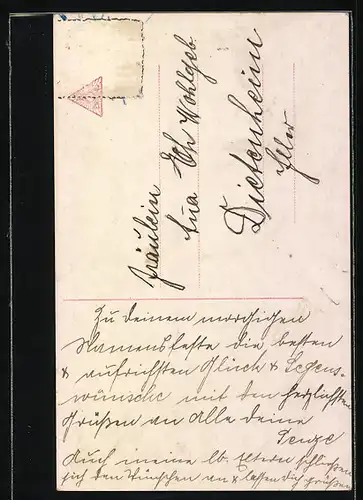 Fräulein
Dietenheim
Zu deinem morgigen
Namensfeste die besten
& aufrichsten Glück & Segens-
wünsche mit den herzlichsten
Grüßen an Alle deine
Senze
Auch meine lb. Eltern schließen
sich den Wünschen an & lassen dich grüßen